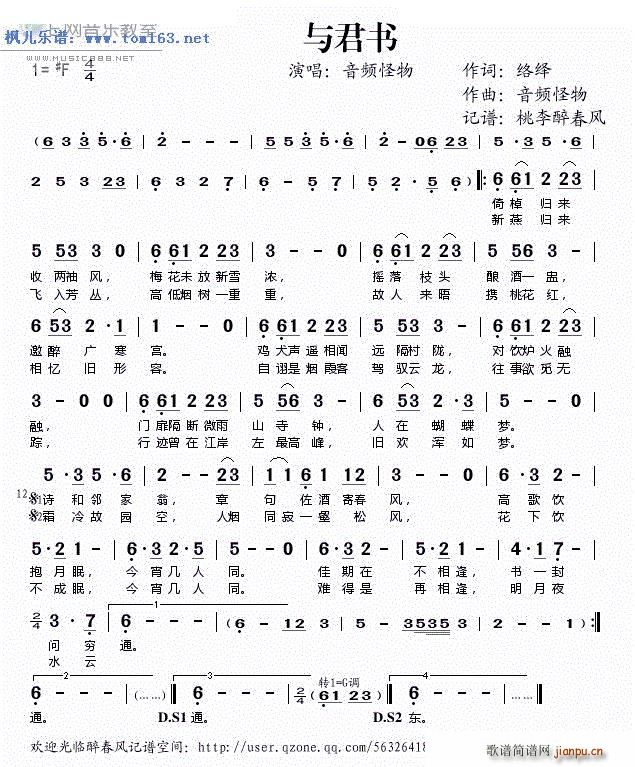 枫儿乐谱：www.tom163.net
WWW.MUSIC888.NET
与君书
1=#F 4/4 演唱：音频怪物 作词：络绎
作曲：音频怪物
记谱：桃李醉春风
(6 3 3 5·6 | 2 - - - | 5·3 5·6 | 2 - 06 23 | 5·3 5·6 |
2 5 3 23 | 3 2 3 7 | 6 - 5 7 | 5 2· 5·6 ) ‖: 6 61 2 23 |
倚棹 归来
新燕 归来
5 53 3 0 | 6 61 2 23 | 3 - - 0 | 6 61 2 23 | 5 56 3 - |
收 两袖 风， 梅花未放新雪 浓， 摇落 枝头 酿酒一盅，
飞 入芳 丛， 高低烟树一重 重， 故人 来晤 携桃花红，
6 53 2·1 | 1 - - 0 | 6 61 2 23 | 5 53 3 - | 6 61 2 23 |
邀醉 广寒 宫。 鸡犬声遥相闻 远隔村陇， 对饮炉火融
相忆 旧形 容。 自诩是烟霞客 驾驭云龙， 往事欲觅无
3 - 0 0 | 6 61 2 23 | 5 53 3 - | 6 53 2·3 | 5 - 0 0 |
融， 门扉隔断微雨 山寺钟， 人在 蝴蝶 梦。
踪， 行迹曾在江岸 左最高峰， 旧欢 浑如 梦。
5·3 5·6 | 2 - - 23 | 1 1 61 12 | 3 - - 0 | 5·3 5·6 |
诗和邻家 翁， 章 句佐酒寄春 风， 高歌饮
霜冷故园 空， 人烟 同寂一壑松 风， 花下饮
5·2 - | 6·3 2·5 | 5 - - 0 | 6·3 2 - | 5·2 2 - | 4·1 7 - |
抱月眠， 今宵几人 同。 佳期在 不相逢， 书一封
不成眠， 今宵几人 同。 难得是 再相逢， 明月夜
2/4 3·7 | 6 - - - | (6· 12 3 | 5 3535 3 | 2 - - 1 ) :‖
问穷 通。
水云
6 - - - | (…… ) | 6 - - - | 2/4 (61 23) | 6 - - - ‖
转1=G调
通。 D.S1 通。 D.S2 东。
欢迎光临醉春风记谱空间：http://user.qzone.qq.com/56326418
歌谱简谱网
jianpu.cn